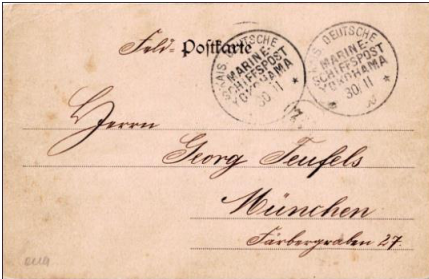 Feld-Postkarte
KAIS. DEUTSCHE
MARINE-
SCHIFFSPOST
YOKOHAMA
30 11
KAIS. DEUTSCHE
MARINE-
SCHIFFSPOST
YOKOHAMA
30 11
Herrn
Georg Teufels
München
Färbergraben 27.